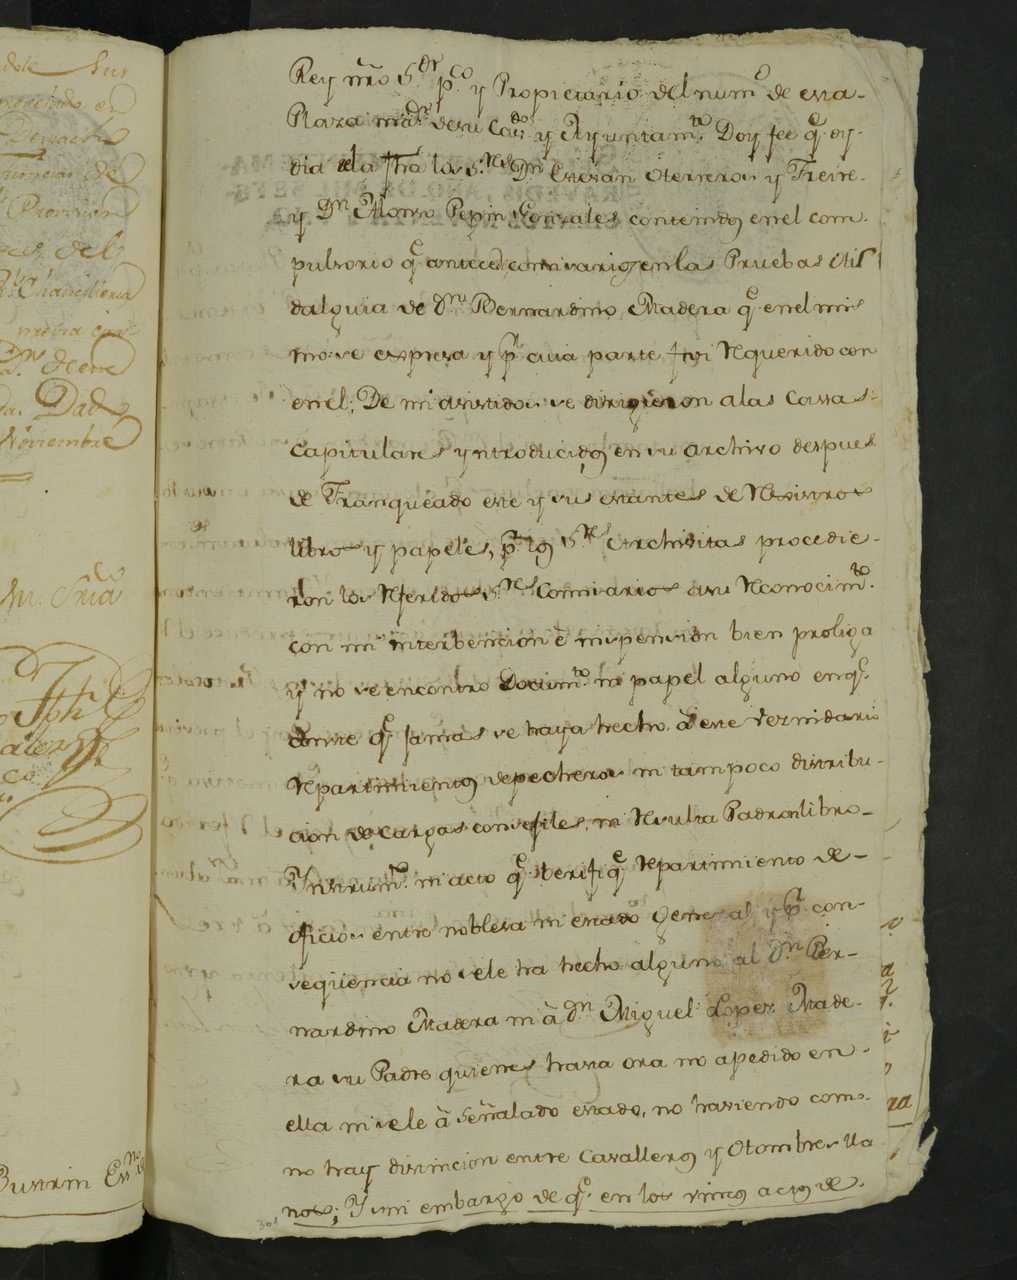 dole Sus
Rey nrô S.or p.co y Propietario del num.o de esta
Plaza m.or de su Cav.do y Ayuntam.to Doy fee q.e oy
dia de la fhâ los S.res D.n Estevan Oterreros y Freire
y D.n Alonso Pepin Gonzales contenidos en el com
pulsorio q.e antecede comisarios en las Pruebas de Hi
dalguia de D.n Bernardino Madera q.e en el mis
mo se expresa y p.r cuia parte fui Requerido con
en el; De mi asistidos se dirigieron a las Cassas
Capitulares yntroducidos en su archivo despues
de Franqueado este y sus estantes de Rexistros
libros y papeles, p.r los S.res Archivistas procedie-
ron los Referidos S.res Comisarios a su Reconocim.to
con mi interbencion é inspension bien proliga
y no se encontro Docum.to ni papel alguno en q.e
conste q.e jamas se haya hecho à este Vezindario
Repartimientos de pecheros ni tampoco distribu-
cion de cargas conseſiles, ni Resulta Padron libro
Ynstrum.to ni acto q.e berifiq.e Repartimiento de
oficios entre nobleza ni estado General y p.r con-
seqüencia no se le ha hecho alguno al D.n Ber-
nardino Madera ni à D.n Miguel Lopez Made-
ra su Padre quienes hasta ora no a pedido en
ella ni se le à Señalado estado, no haviendo como
no hay distincion entre Cavalleros y Ombres lla
nos; Y sin embargo de q.e en los vimos actos de
Dad
Noviembre